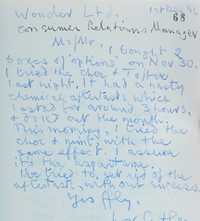 Wonder Ltd.
68
Consumer Relations Manager
Ms/Mr. I bought 2
boxes of 'options' on Nov 30.
I tried the choc & Toffee
last night, it had a nasty
chemical aftertaste which
lasted for around 3 hours,
out the mouth.
This morning, I tried the
choc & mint, with the
same effect. I assume
it's the aspartame.
I've tried to get rid of the
aftertaste, without success.
Yrs ffly,